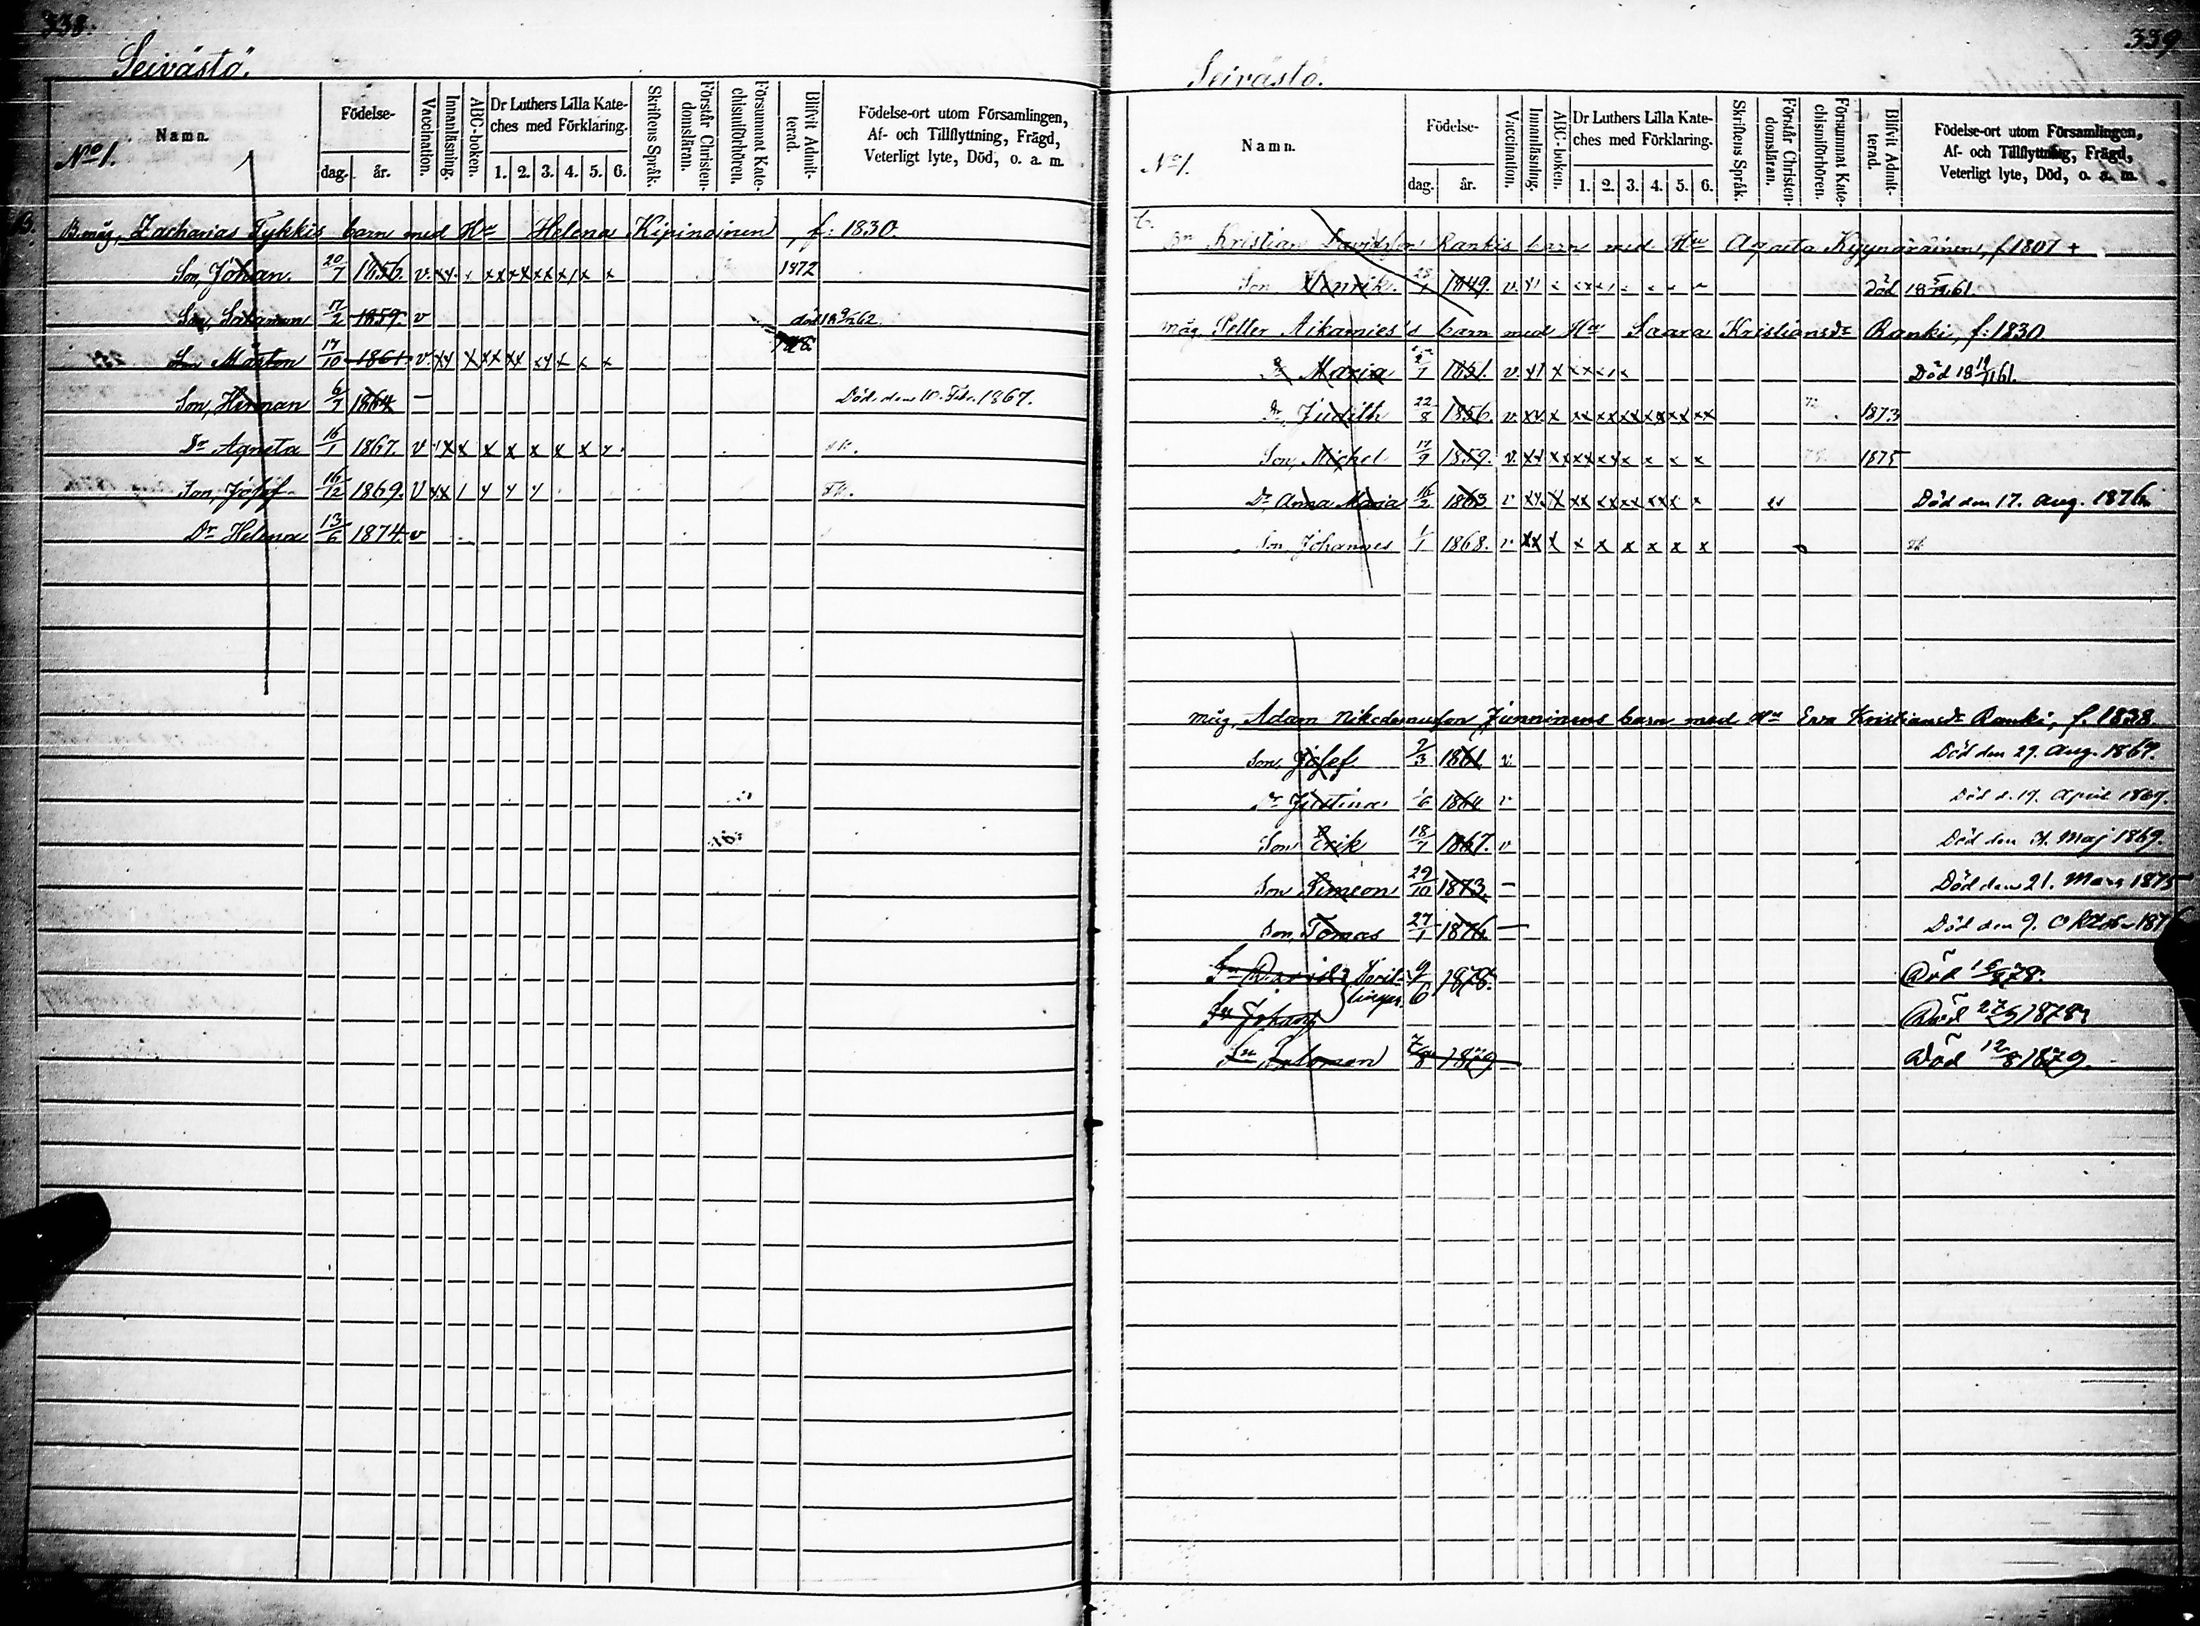 338.
Seivästö.
Namn.
No 1.
Födelse-
dag. år.
Vaccination.
Innanläsning.
ABC-boken.
Dr Luthers Lilla Kate-
ches med Förklaring.
1. 2. 3. 4. 5. 6.
Skriftens Språk.
Förstår Christen-
domsläran.
Försummat Kate-
chismiförhören.
Blifvit Admit-
terad.
Födelse-ort utom Församlingen,
Af- och Tillflyttning, Frägd,
Veterligt lyte, Död, o. a. m.
B. måg, Zacharias Tykkis barn med Hu Helena Kipinoinen, f: 1830.
Son, Johan. 20/7 1856. v. xx x xx xx xx x x x 1872
Son, Salomon 17/2 1859. v död 1862
Son Mårten 17/10 1861. v. xx x xx xx xx x x x
Son, Herman 6/7 1864 — Död den 10. Febr. 1867.
Dr Agneta 16/1 1867. v x x x x x x x x
Son, Josef. 16/12 1869. v
Dr Helena 13/6 1874. v
339
Seivästö.
No 1.
Namn.
Födelse-
dag. år.
Vaccination.
Innanläsning.
ABC-boken.
Dr Luthers Lilla Kate-
ches med Förklaring.
1. 2. 3. 4. 5. 6.
Skriftens Språk.
Förstår Christen-
domsläran.
Försummat Kate-
chismiförhören.
Blifvit Admit-
terad.
Födelse-ort utom Församlingen,
Af- och Tillflyttning, Frägd,
Veterligt lyte, Död, o. a. m.
Kristian Davidsson Rankis barn med Hu Agneta Kyynäräinen, f. 1807 +
Son Henrik. 1849. v. Död
måg, Petter Aikamies's barn med Hu Saara Kristiansdr Ranki, f: 1830
Dr Maria 1851. v. Död
Dr, Judith 22/8 1856. v. xx. x xx xx xx xx xx xx 1873
Son, Michel 17/9 1859. v. xx 1875
Dr Anna Maria 16/2 1863 v xx x xx xx xx xx x x Död den 17. Aug. 1876.
Son Johannes 1/1 1868. v xx x x x x x x x
måg, Adam Nikodemusson Junninens barn med Hu Eva Kristiansdr Ranki, f. 1838.
Son, Josef 1861 v. Död den 29. Aug. 1869.
Dr Justina 1864 v Död d. 19. April 1869.
Son Erik 18/7 1867. v Död den Maj 1869.
Son Simeon 29/10 1873. — Död den 21. Mars 1875
Son, Tomas 27/1 1876. — Död den 9. Oktob.
Sn David Tvil- 9/6 1878. Död
Sn Johan lingar. Död 1878.
Sn Salomon 7/8 1879 Död 12/8 1879.